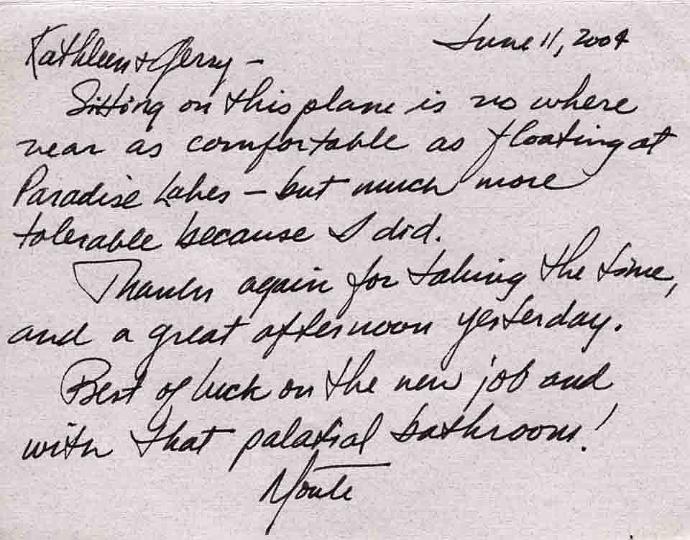 June 11, 2004
Kathleen & Gerry –
Sitting on this plane is no where
near as comfortable as floating at
Paradise Lakes – but much more
tolerable because I did.
Thanks again for taking the time,
and a great afternoon yesterday.
Best of luck on the new job and
with that palatial bathroom!
Monte